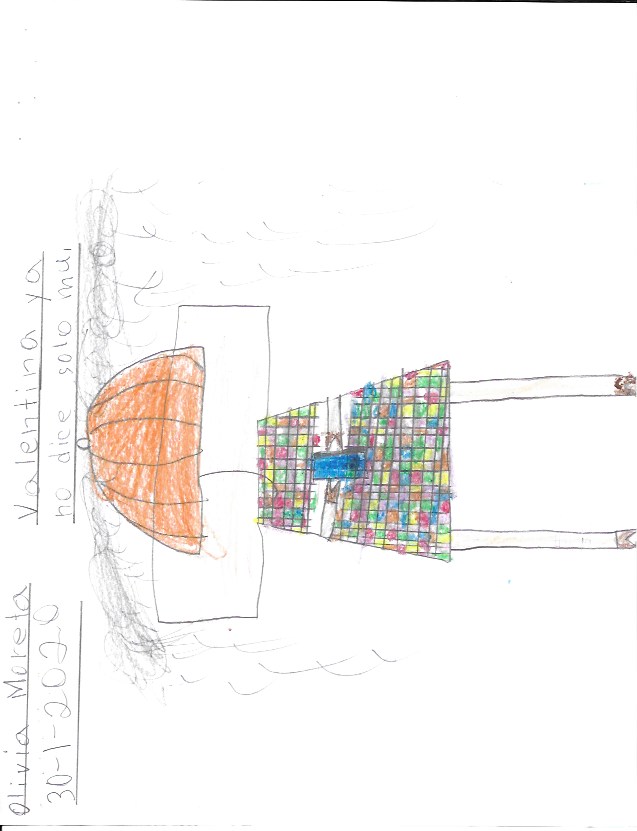 Olivia Moreta
30-1-2020
Valentina ya
no dice solo mu.